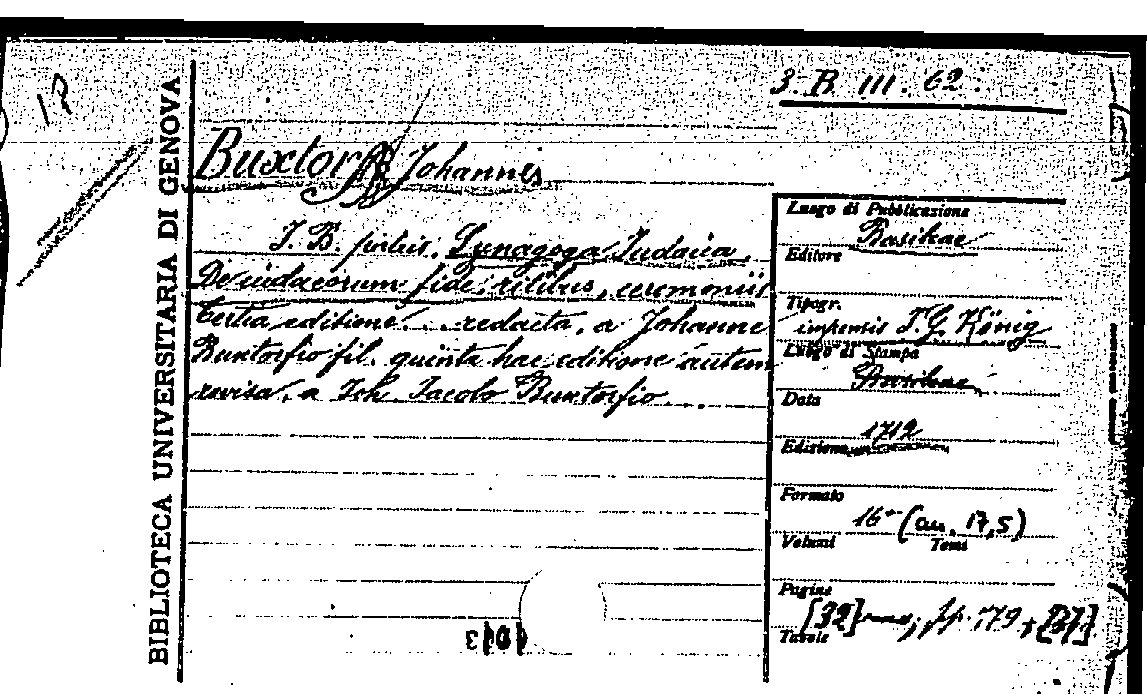 3. B. III. 62.
17
BIBLIOTECA UNIVERSITARIA DI GENOVA
Buxtorff Johannes
J. B. patris, Synagoga Judaica,
De iudaeorum fide, ritibus, ceremoniis
tertia editione... redacta, a Johanne
Buxtorfio fil. quinta hac editione autem
revisa, a Joh. Jacobo Buxtorfio...
Luogo di Pubblicazione
Basileae
Editore
Tipogr.
impensis J. G. König
Luogo di Stampa
Basileae
Data
1712
Edizione
Formato
16° (cm. 17,5)
Volumi Tomi
Pagine
[32] pp. 779 +
Tavole